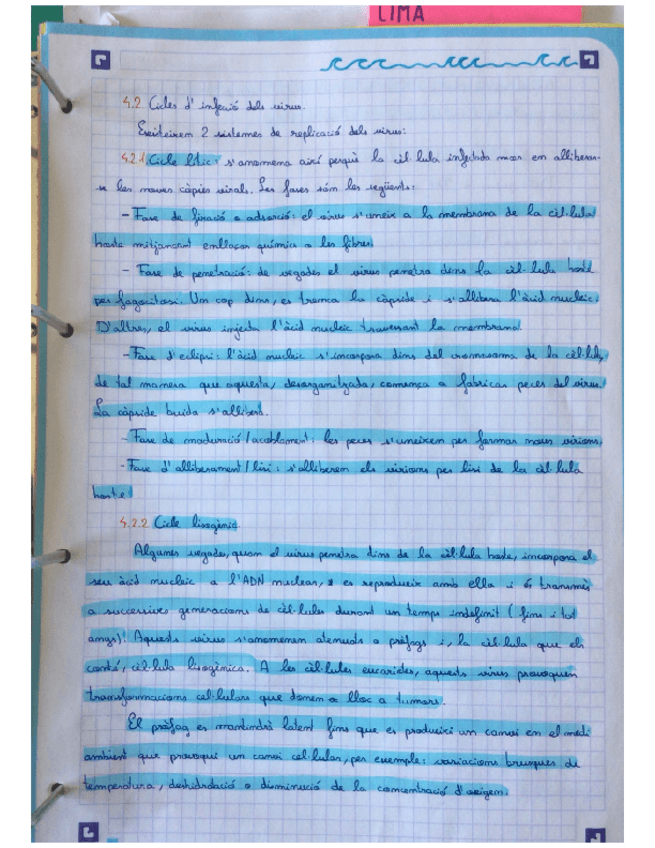 LIMA
4.2. Cicles d'infecció dels virus.
Existeixen 2 sistemes de replicació dels virus:
4.2.1 Cicle lític: s'anomena així perquè la cèl·lula infectada mor en alliberar-
se les noves còpies virals. Les fases són les següents:
- Fase de fixació o adsorció: el virus s'uneix a la membrana de la cèl·lula
hoste mitjançant enllaços químics a les fibres.
- Fase de penetració: de vegades el virus penetra dins la cèl·lula hoste
per fagocitosi. Un cop dins, es trenca la càpside i s'allibera l'àcid nucleic.
D'altres, el virus injecta l'àcid nucleic travessant la membrana.
- Fase d'eclipsi: l'àcid nucleic s'incorpora dins del cromosoma de la cèl·lula,
de tal manera que aquesta, desorganitzada, comença a fabricar peces del virus.
La càpside buida s'allibera.
- Fase de maduració/acoblament: les peces s'uneixen per formar nous virions.
- Fase d'alliberament/lisi: s'alliberen els virions per lisi de la cèl·lula
hoste.
4.2.2 Cicle lisogènic.
Algunes vegades, quan el virus penetra dins de la cèl·lula hoste, incorpora el
seu àcid nucleic a l'ADN nuclear, es reprodueix amb ella i és transmès
a successives generacions de cèl·lules durant un temps indefinit (fins i tot
anys). Aquests virus s'anomenen atenuats o pròfags i, la cèl·lula que els
conté, cèl·lula lisogènica. A les cèl·lules eucariotes, aquests virus provoquen
transformacions cel·lulars que donen lloc a tumors.
El pròfag es mantindrà latent fins que es produeixi un canvi en el medi
ambient que provoqui un canvi cel·lular, per exemple: variacions brusques de
temperatura, deshidratació o disminució de la concentració d'oxigen.